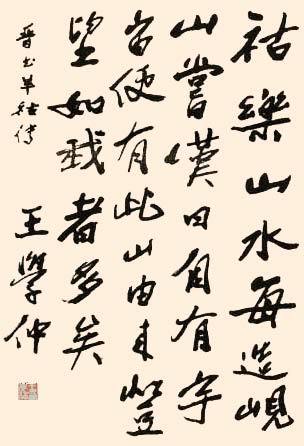 祜樂山水每造峴
山嘗嘆曰自有宇
宙使有此山由來登
望如我者多矣
晉書羊祜傳
王學仲